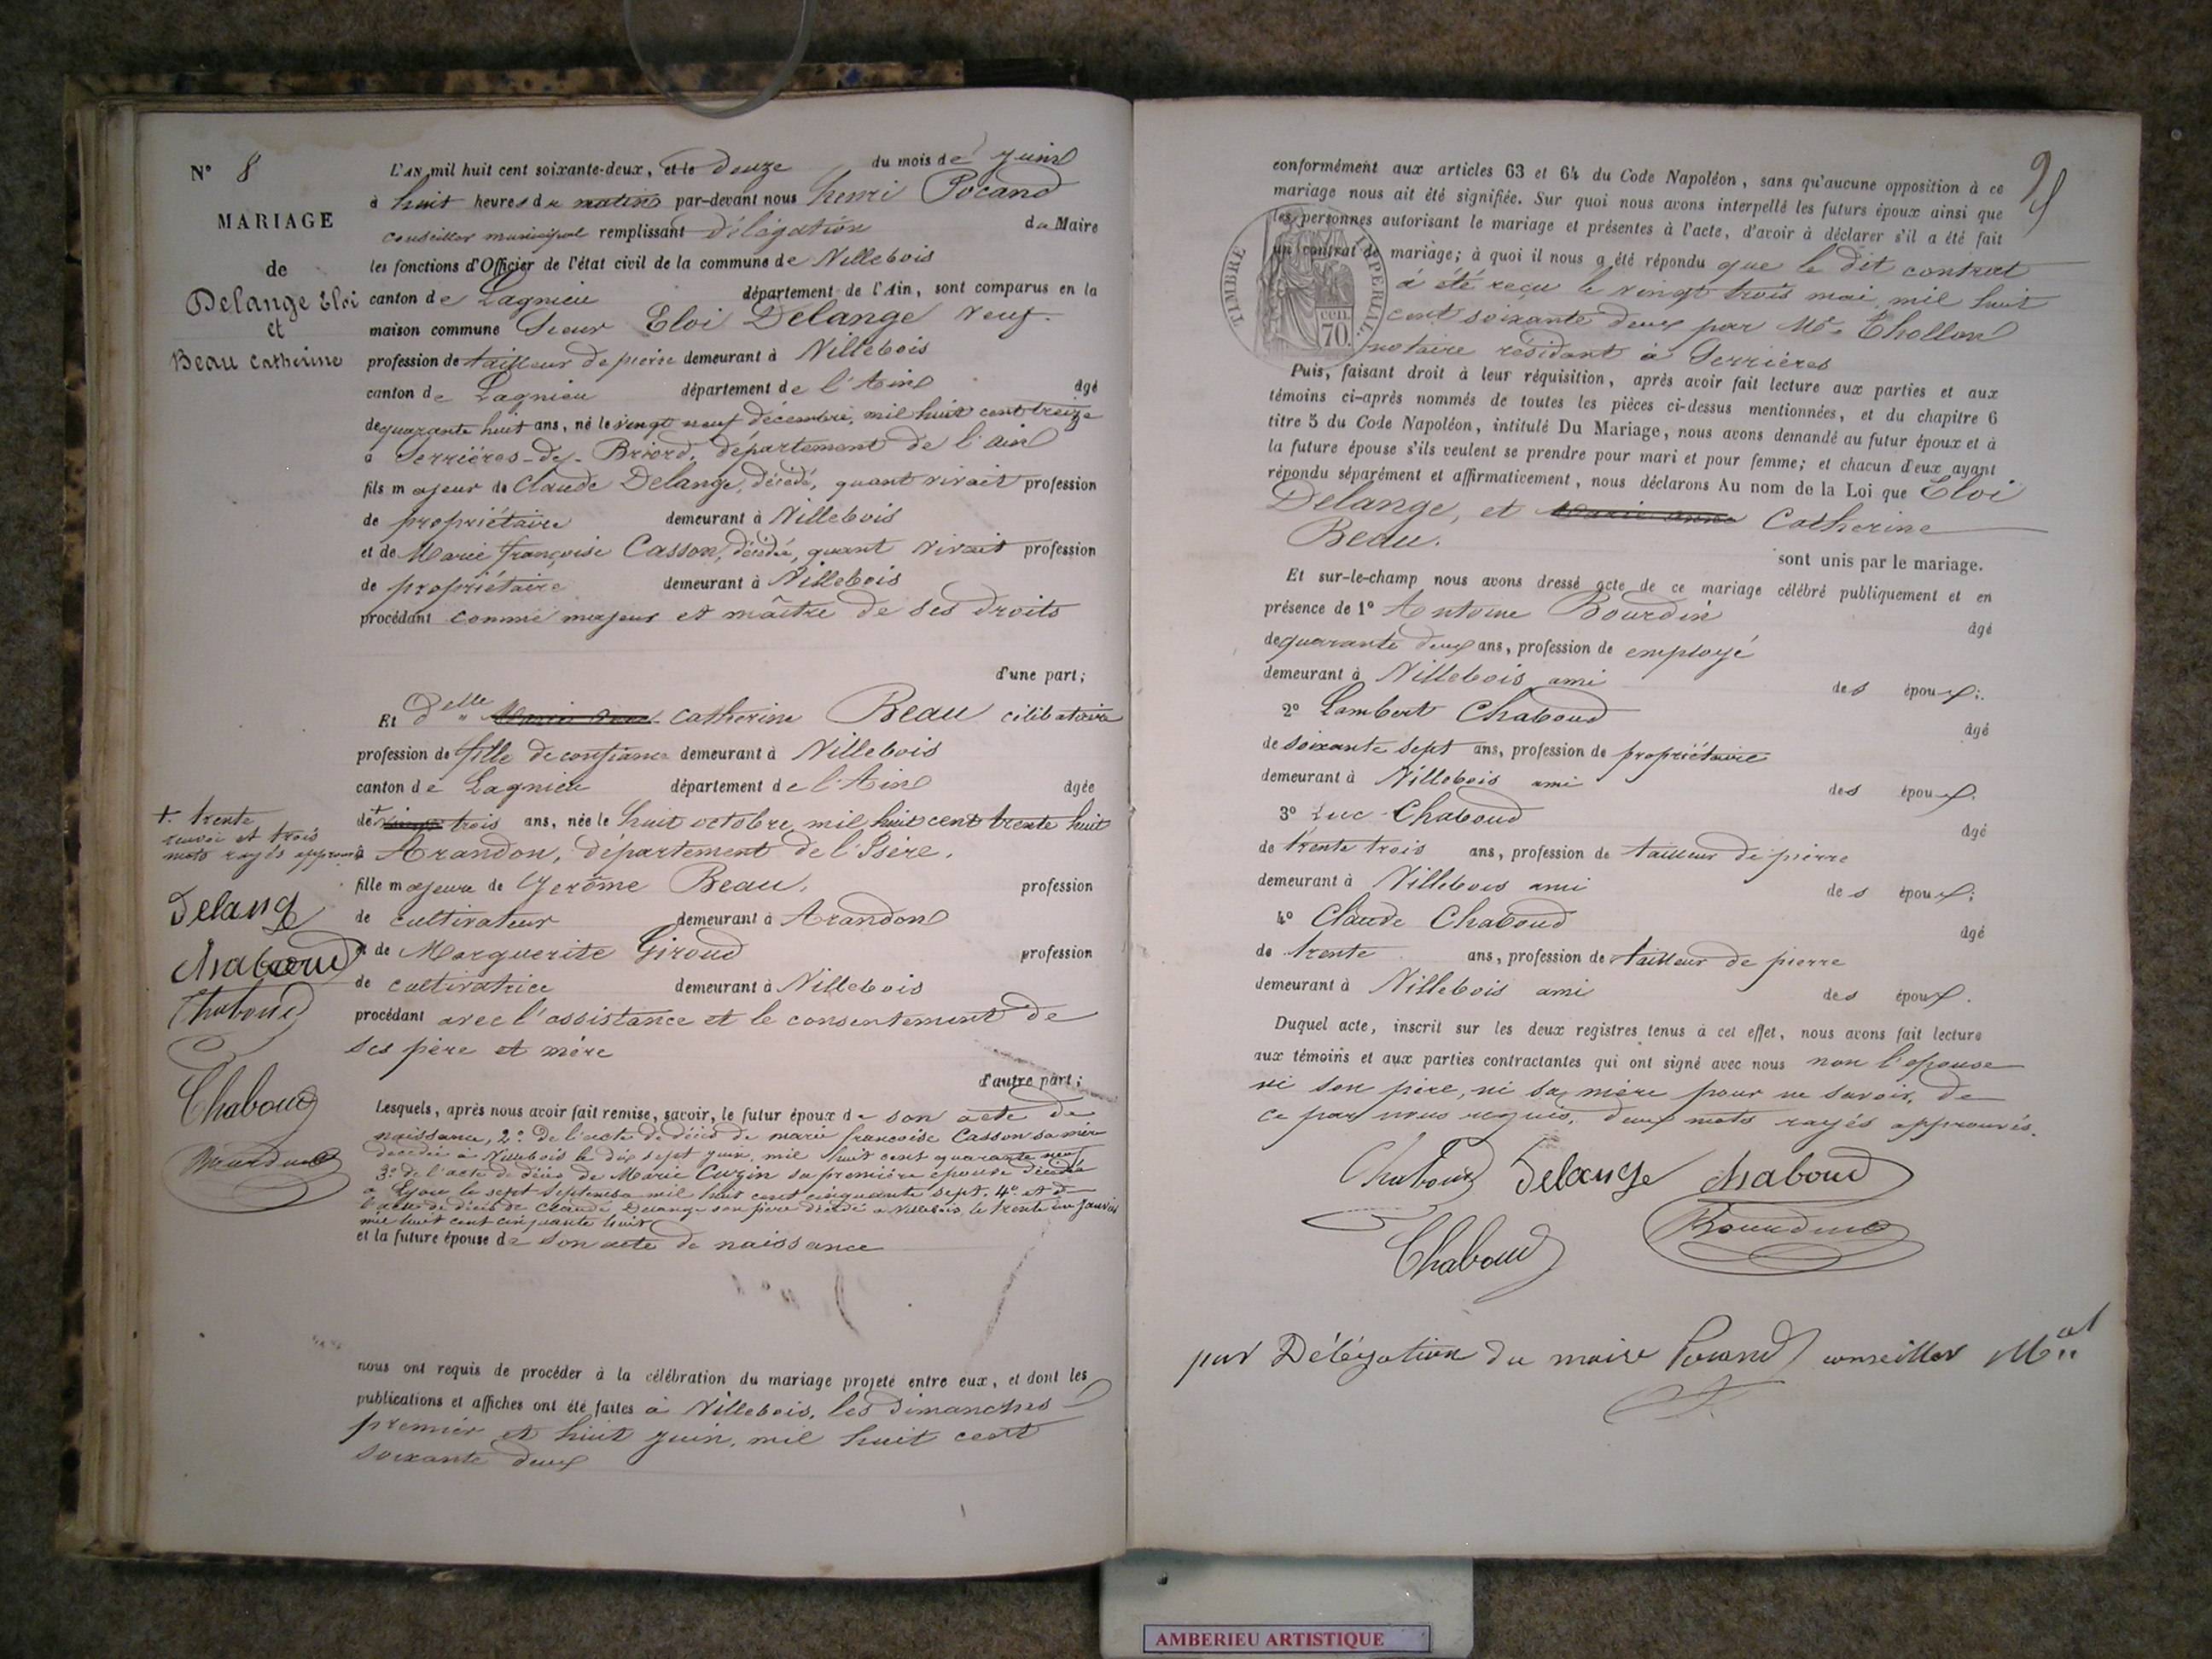 N° 8
MARIAGE
de
Delange Eloi
et
Beau Catherine
L'AN mil huit cent soixante-deux, et le douze du mois de juin
à huit heures du matin par-devant nous henri Pocand
conseiller municipal remplissant délégation du Maire
les fonctions d'Officier de l'état civil de la commune de Villebois
canton de Lagnieu département de l'Ain, sont comparus en la
maison commune Sieur Eloi Delange veuf
profession de tailleur de pierre demeurant à Villebois
canton de Lagnieu département de l'Ain âgé
de quarante huit ans, né le vingt neuf décembre, mil huit cent treize
à Serrières-de-Briord, département de l'ain
fils majeur de Claude Delange, décédé, quant vivait profession
de propriétaire demeurant à Villebois
et de Marie françoise Casson, décédée, quant vivait profession
de propriétaire demeurant à Villebois
procédant comme majeur et maître de ses droits
d'une part;
Et Delle Catherine Beau célibataire
profession de fille de confiance demeurant à Villebois
canton de Lagnieu département de l'Ain âgée
de + vingt trois ans, née le huit octobre, mil huit cent trente huit
à Arandon, département de l'Isère.
fille majeure de Jerôme Beau, profession
de cultivateur demeurant à Arandon
et de Marguerite Giroud profession
de cultivatrice demeurant à Villebois
procédant avec l'assistance et le consentement de
ses père et mère
d'autre part;
Lesquels, après nous avoir fait remise, savoir, le futur époux de son acte de
naissance, 2° de l'acte de décès de marie francoise Casson sa mère
décédée à Villebois le dix sept juin, mil huit cent quarante neuf
3° de l'acte de décès de Marie Cuzin sa première épouse décédée
à Lyon le sept septembre mil huit cent cinquante sept. 4° et de
l'acte de décès de Claude Delange son père décédé à Villebois le trente un janvier
mil huit cent cinquante huit
et la future épouse de son acte de naissance
nous ont requis de procéder à la célébration du mariage projeté entre eux, et dont les
publications et affiches ont été faites à Villebois, les dimanches
premier et huit juin, mil huit cent
soixante deux
+ trente
renvoi et trois
mots rayés approuvés
Delange
Chaboud
Chaboud
Chaboud
Bourdin
95
conformément aux articles 63 et 64 du Code Napoléon, sans qu'aucune opposition à ce
mariage nous ait été signifiée. Sur quoi nous avons interpellé les futurs époux ainsi que
les personnes autorisant le mariage et présentes à l'acte, d'avoir à déclarer s'il a été fait
un contrat de mariage; à quoi il nous a été répondu que le dit contrat
à été reçu le vingt trois mai, mil huit
cent soixante deux par Me Thollon
notaire résidant à Serrières
TIMBRE IMPERIAL
70 cen.
Puis, faisant droit à leur réquisition, après avoir fait lecture aux parties et aux
témoins ci-après nommés de toutes les pièces ci-dessus mentionnées, et du chapitre 6
titre 5 du Code Napoléon, intitulé Du Mariage, nous avons demandé au futur époux et à
la future épouse s'ils veulent se prendre pour mari et pour femme; et chacun d'eux ayant
répondu séparément et affirmativement, nous déclarons Au nom de la Loi que Eloi
Delange, et Marie anne Catherine
Beau.
sont unis par le mariage.
Et sur-le-champ nous avons dressé acte de ce mariage célébré publiquement et en
présence de 1° Antoine Bourdin âgé
de quarante deux ans, profession de employé
demeurant à Villebois ami des époux;
2° Lambert Chaboud âgé
de soixante sept ans, profession de propriétaire
demeurant à Villebois ami des époux;
3° Luc Chaboud âgé
de trente trois ans, profession de tailleur de pierre
demeurant à Villebois ami des époux;
4° Claude Chaboud âgé
de trente ans, profession de tailleur de pierre
demeurant à Villebois ami des époux.
Duquel acte, inscrit sur les deux registres tenus à cet effet, nous avons fait lecture
aux témoins et aux parties contractantes qui ont signé avec nous non l'epouse
ni son père, ni sa mère pour ne savoir, de
ce par nous requis, deux mots rayés approuvés.
Chaboud Delange Chaboud
Chaboud Bourdin
par Délégation du maire Pocand conseiller Mal
AMBERIEU ARTISTIQUE